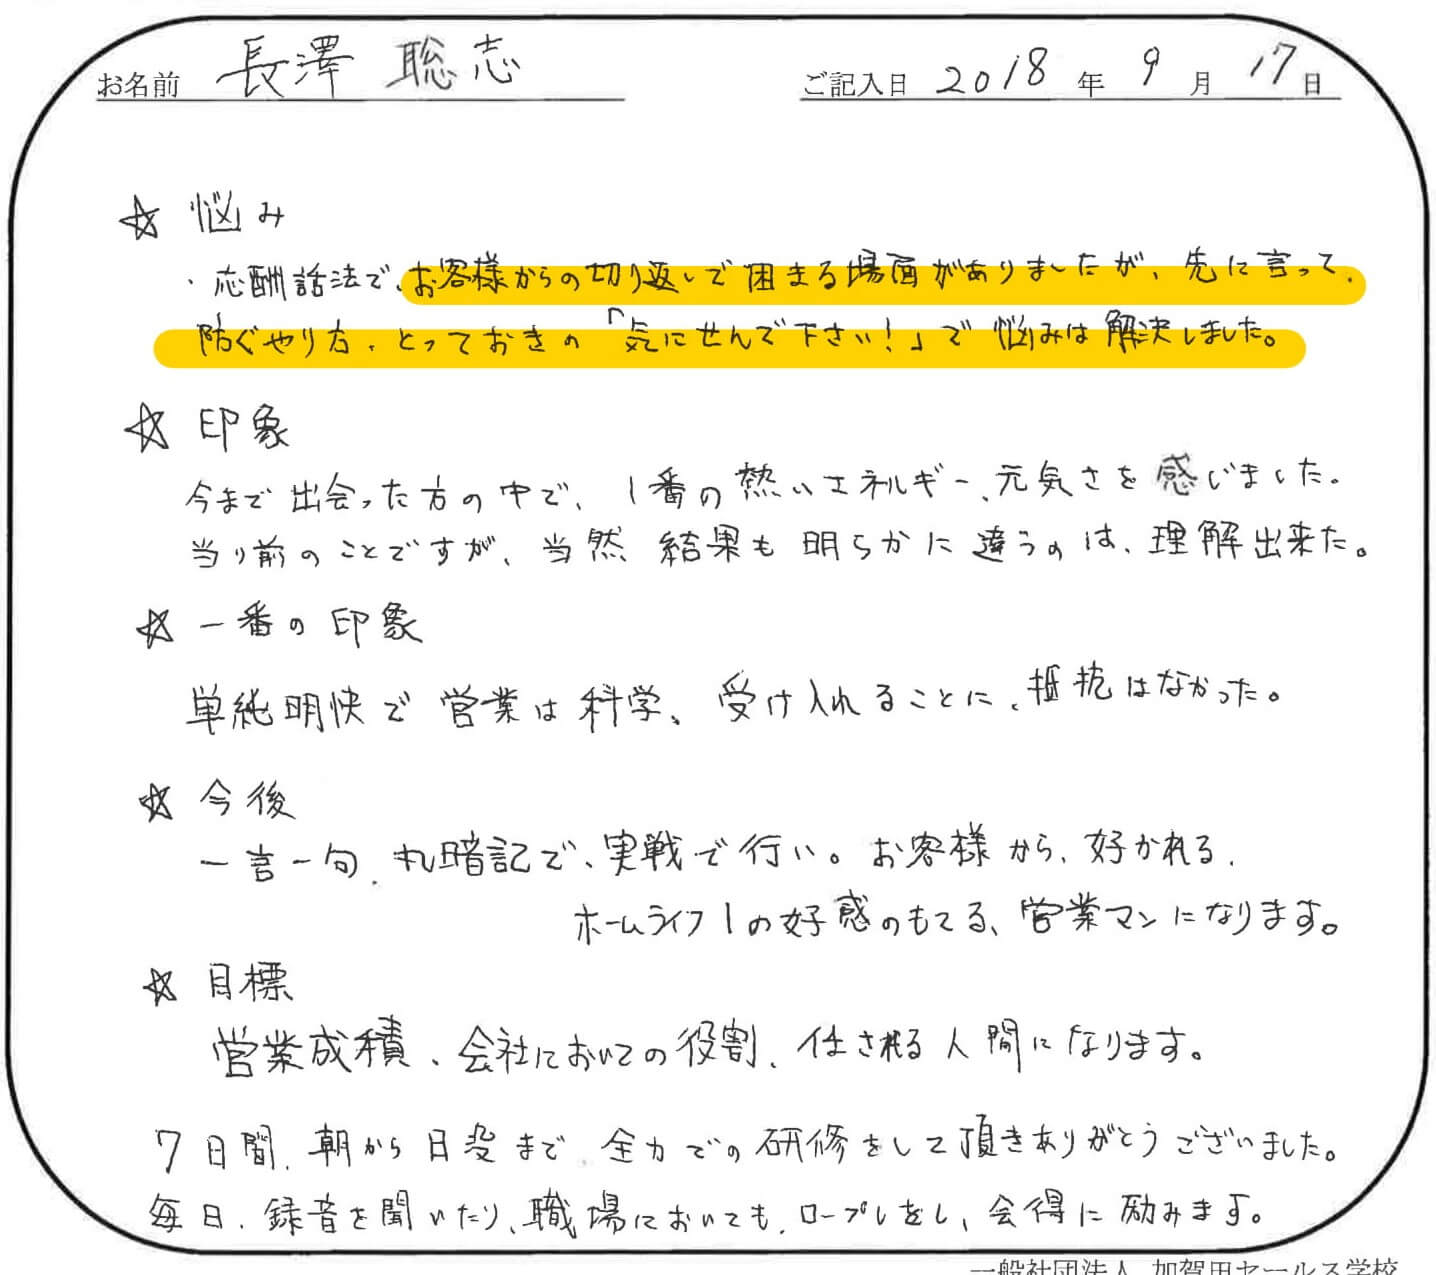 お名前 長澤 聡志 ご記入日 2018 年 9 月 17 日
☆ 悩み
・応酬話法で、お客様からの切り返しで困まる場面がありましたが、先に言って、
防ぐやり方、とっておきの「気にせんで下さい!」で悩みは解決しました。
☆ 印象
今まで出会った方の中で、1番の熱いエネルギー、元気さを感じました。
当り前のことですが、当然、結果も明らかに違うのは、理解出来た。
☆ 一番の印象
単純明快で営業は科学、受け入れることに、抵抗はなかった。
☆ 今後
一言一句、丸暗記で、実戦で行い。お客様から、好かれる、
ホームライフ1の好感のもてる、営業マンになります。
☆ 目標
営業成積、会社においての役割、任される人間になります。
7日間、朝から日没まで、全力での研修をして頂きありがとうございました。
毎日、録音を聞いたり、職場においても、ロープレをし、会得に励みます。
一般社団法人 加賀田セールス学校